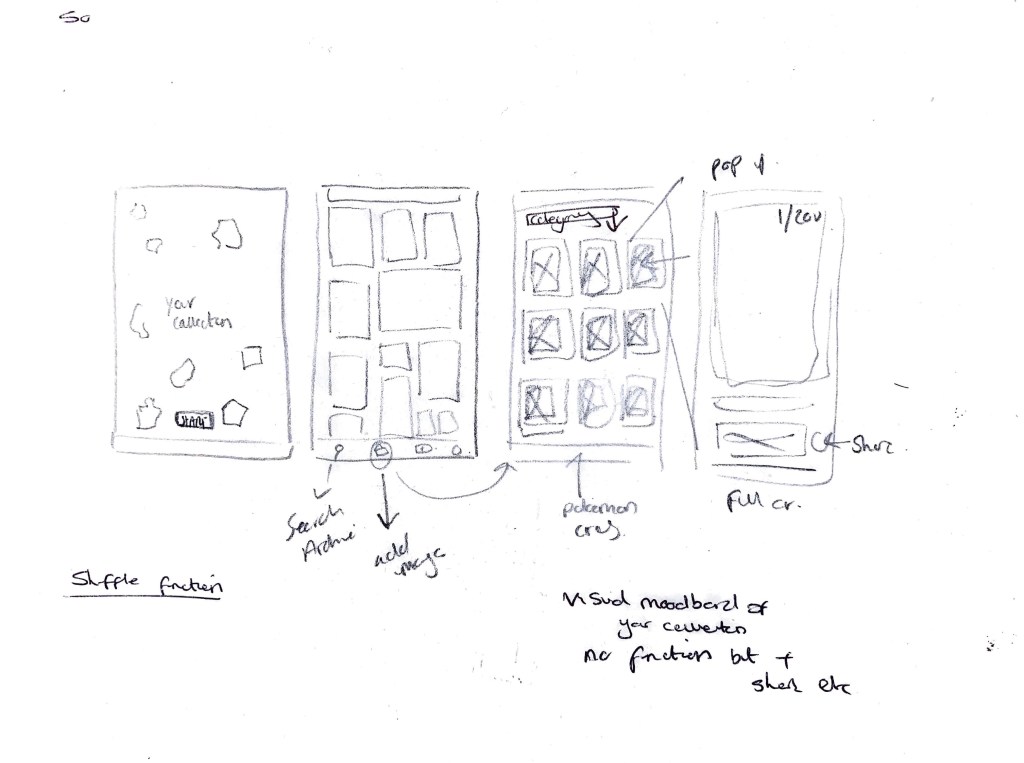 So
pop
1/200
Category
your
collection
START
Share
Search
add
image
pokemon
Full
Shuffle function
visual moodboard of
your collection
no function but +
share etc